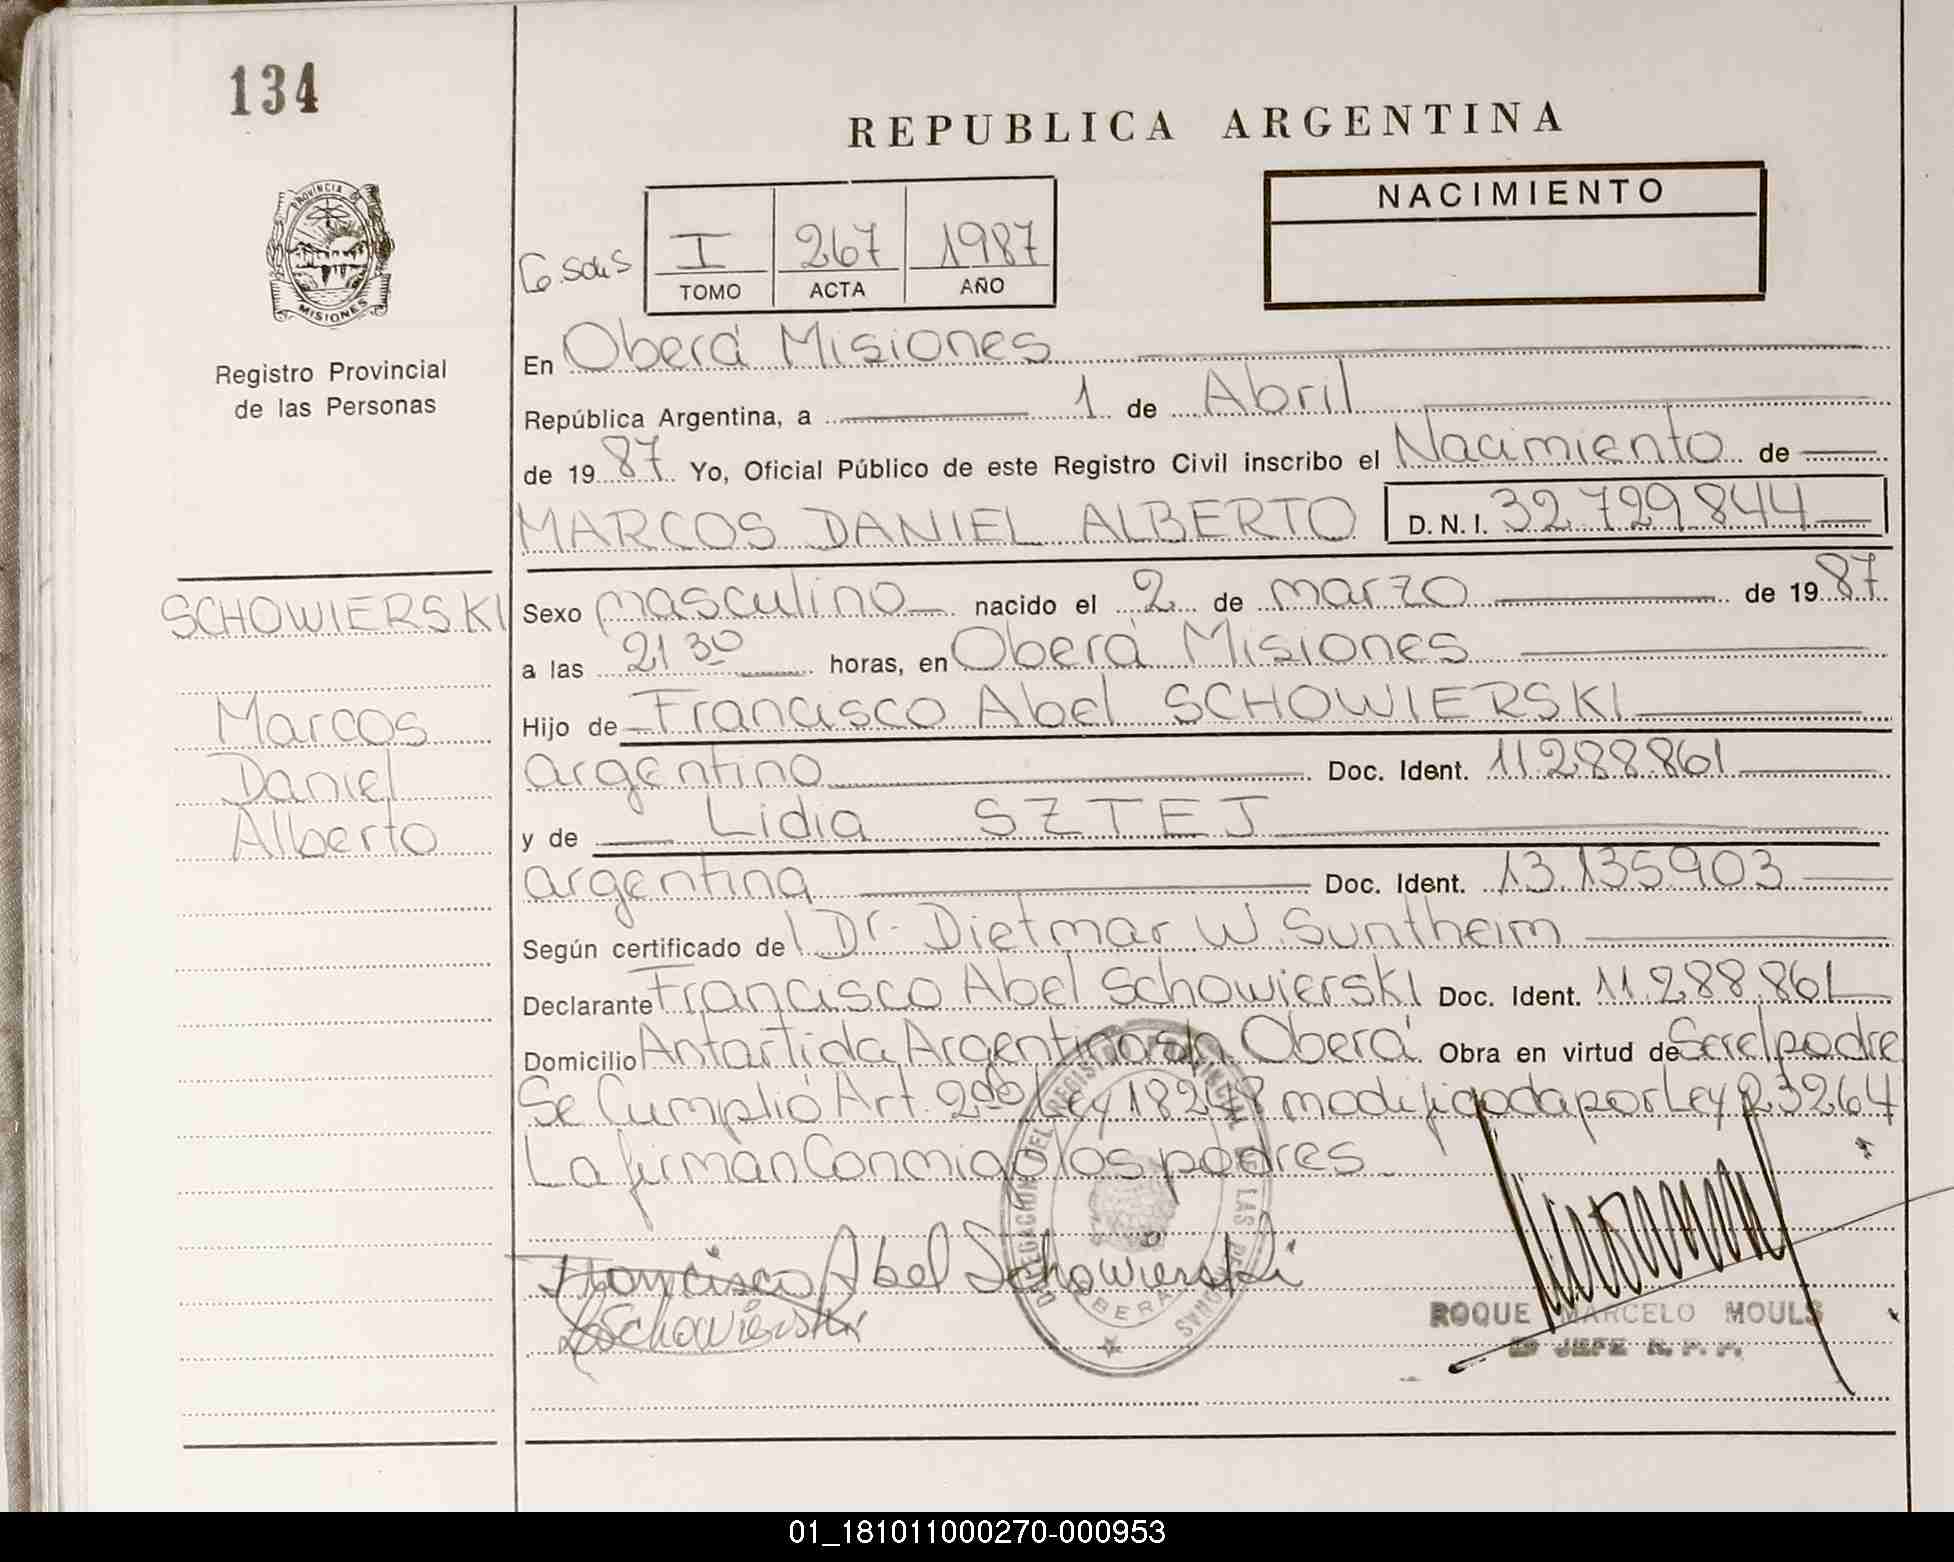 134
REPUBLICA ARGENTINA
PROVINCIA DE
MISIONES
Registro Provincial
de las Personas
NACIMIENTO
I 267 1987
TOMO ACTA AÑO
En Oberá Misiones
República Argentina, a 1 de Abril
de 19 87 Yo, Oficial Público de este Registro Civil inscribo el Nacimiento de
MARCOS DANIEL ALBERTO D.N.I. 32.729.844
SCHOWIERSKI
Marcos
Daniel
Alberto
Sexo masculino nacido el 2 de marzo de 19 87
a las 21 30 horas, en Oberá Misiones
Hijo de Francisco Abel SCHOWIERSKI
argentino Doc. Ident. 11.288.861
y de Lidia SZTEJ
argentina Doc. Ident. 13.135.903
Según certificado del Dr. Dietmar W. Suntheim
Declarante Francisco Abel Schowierski Doc. Ident. 11.288.861
Domicilio Antartida Argentina sn Oberá Obra en virtud de Ser el padre
Se Cumplió Art. 2do Ley 18248 modificada por Ley 23264
La firman Conmigo los padres
Francisco Abel Schowierski
Schowierski
DELEGACION DEL REGISTRO PROVINCIAL DE LAS PERSONAS
OBERA
ROQUE MARCELO MOULS
JEFE R. P. P.
01_181011000270-000953